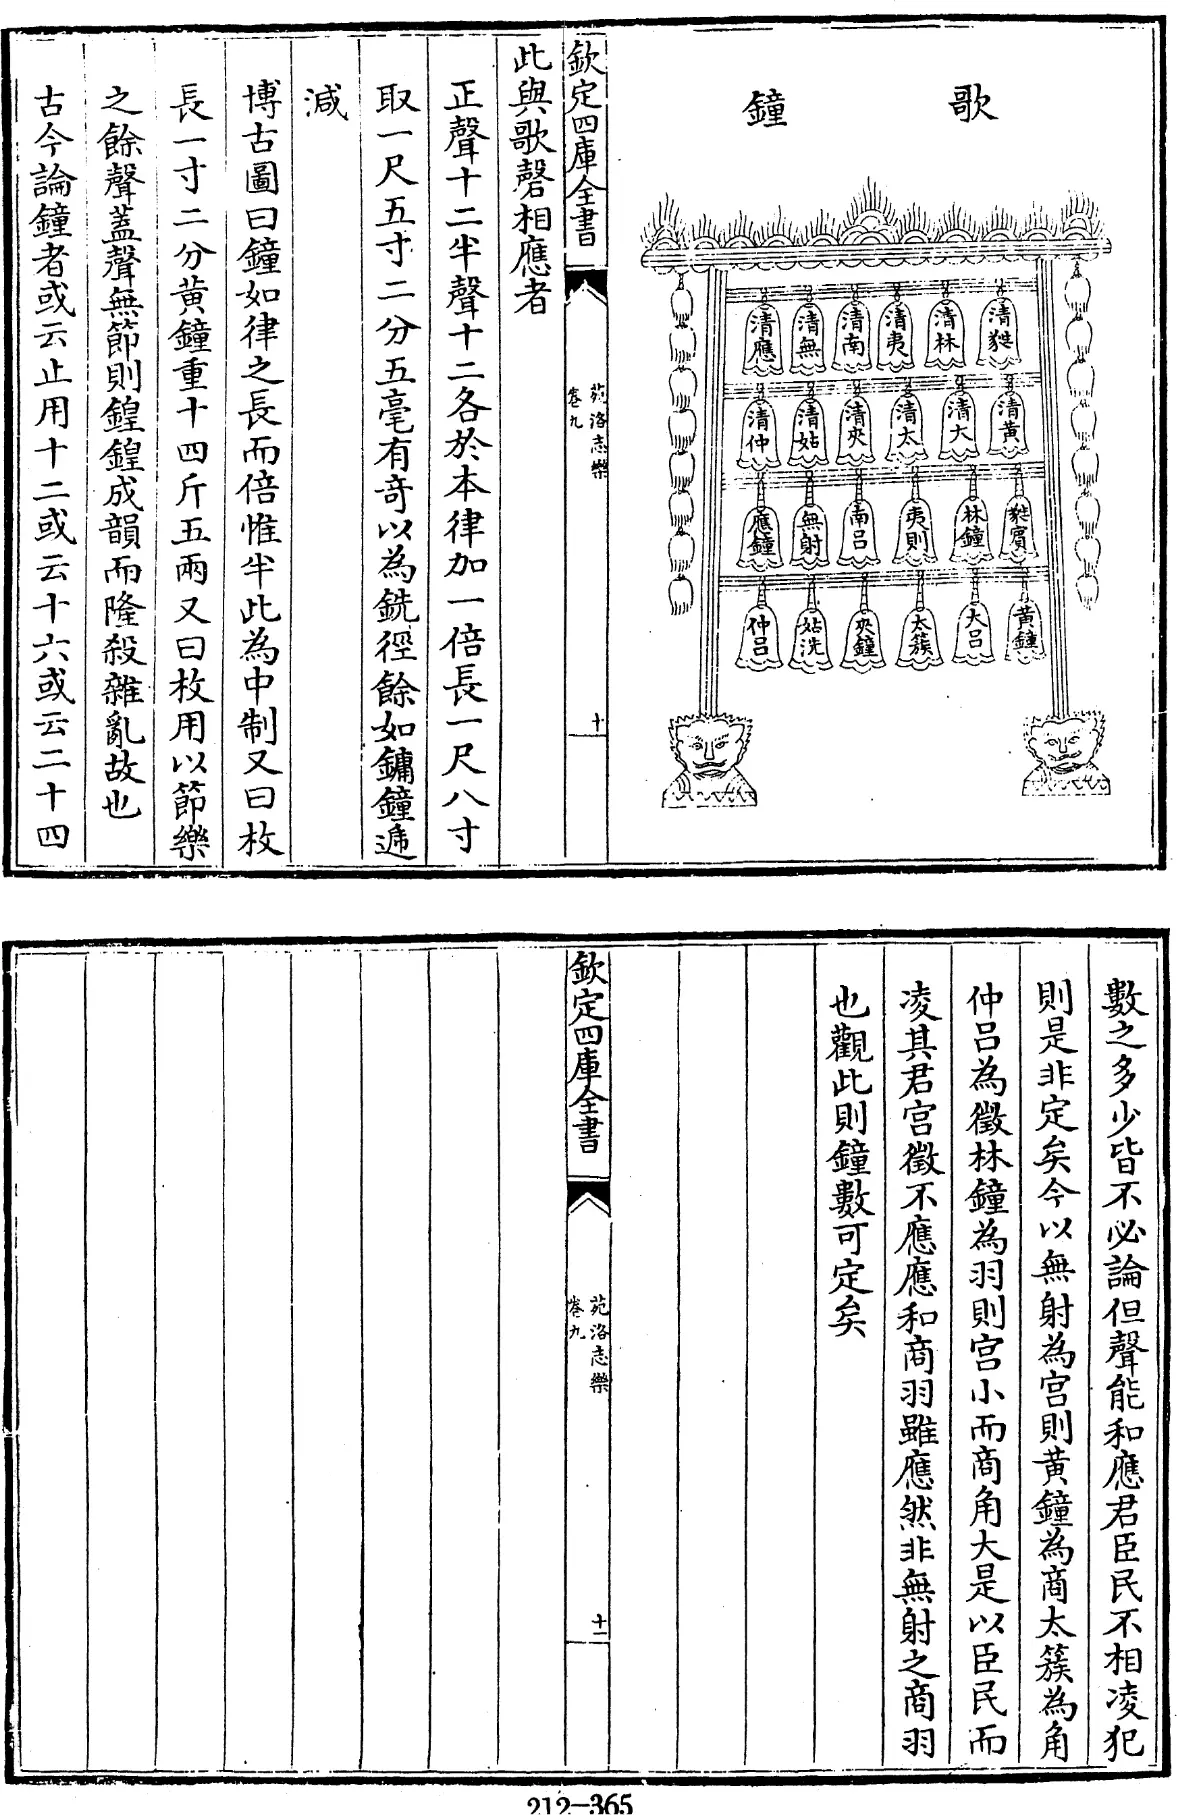 歌鐘
清蕤 清林 清夷 清南 清無 清應
清黃 清大 清太 清夾 清姑 清仲
蕤賓 林鐘 夷則 南呂 無射 應鐘
黃鐘 大呂 太簇 夾鐘 姑洗 仲呂
欽定四庫全書
苑洛志樂
卷九
十
此與歌磬相應者
正聲十二半聲十二各於本律加一倍長一尺八寸
取一尺五寸二分五毫有奇以為銑徑餘如鏞鐘遞
減
博古圖曰鐘如律之長而倍惟半此為中制又曰枚
長一寸二分黃鐘重十四斤五兩又曰枚用以節樂
之餘聲蓋聲無節則鍠鍠成韻而隆殺雜亂故也
古今論鐘者或云止用十二或云十六或云二十四
數之多少皆不必論但聲能和應君臣民不相凌犯
則是非定矣今以無射為宮則黃鐘為商太簇為角
仲呂為徵林鐘為羽則宮小而商角大是以臣民而
凌其君宮徵不應應和商羽雖應然非無射之商羽
也觀此則鐘數可定矣
欽定四庫全書
苑洛志樂
卷九
十一
212-365